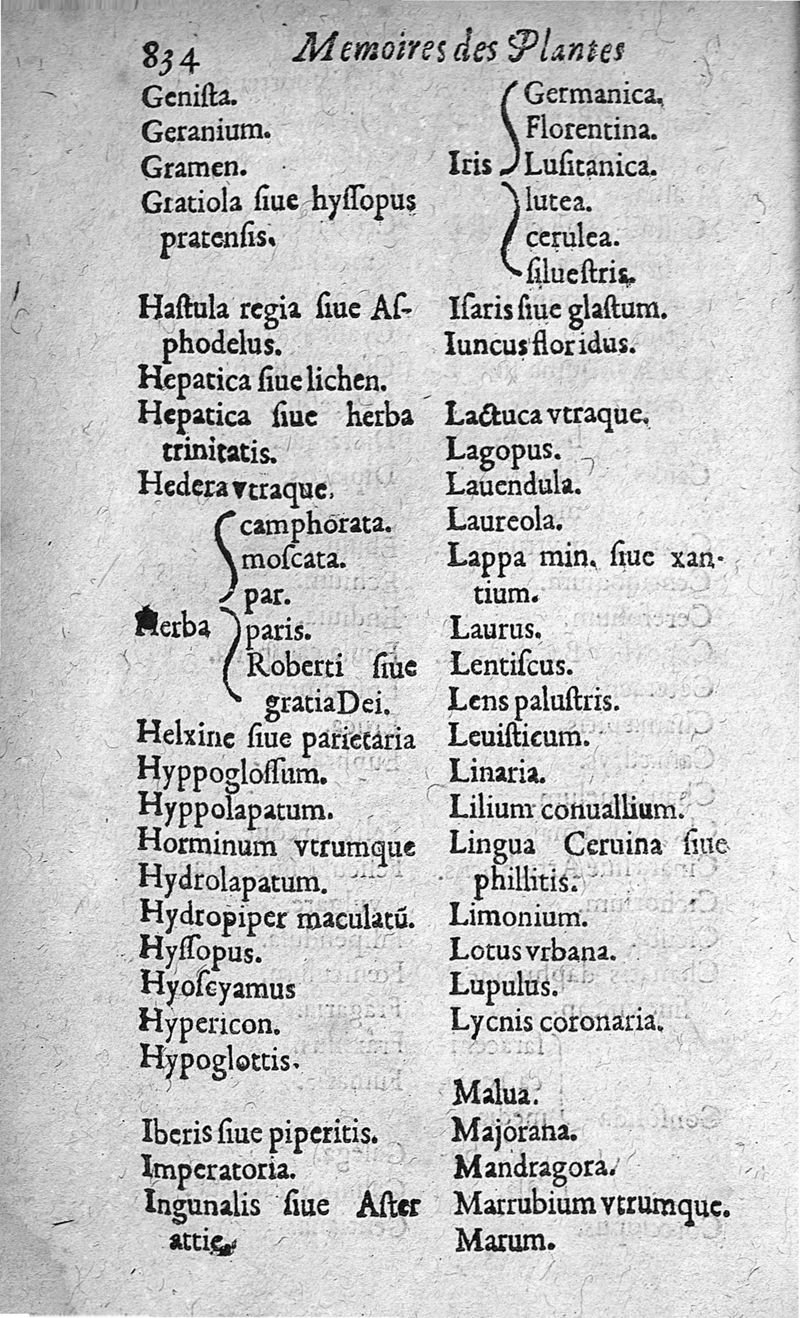 834 Memoires des Plantes
Geniſta.
Geranium.
Gramen.
Gratiola ſiue hyſſopus
pratenſis.
Haſtula regia ſiue Aſ-
phodelus.
Hepatica ſiue lichen.
Hepatica ſiue herba
trinitatis.
Hedera vtraque.
camphorata.
moſcata.
par.
Herba
paris.
Roberti ſiue
gratia Dei.
Helxine ſiue parietaria
Hyppogloſſum.
Hyppolapatum.
Horminum vtrumque
Hydrolapatum.
Hydropiper maculatũ.
Hyſſopus.
Hyoſcyamus
Hypericon.
Hypoglottis.
Iberis ſiue piperitis.
Imperatoria.
Ingunalis ſiue Aſter
attic.
Germanica.
Florentina.
Iris Luſitanica.
lutea.
cerulea.
ſilueſtris.
Iſaris ſiue glaſtum.
Iuncus floridus.
Lactuca vtraque.
Lagopus.
Lauendula.
Laureola.
Lappa min. ſiue xan-
tium.
Laurus.
Lentiſcus.
Lens paluſtris.
Leuiſticum.
Linaria.
Lilium conuallium.
Lingua Ceruina ſiue
phillitis.
Limonium.
Lotus vrbana.
Lupulus.
Lycnis coronaria.
Malua.
Majorana.
Mandragora.
Marrubium vtrumque.
Marum.